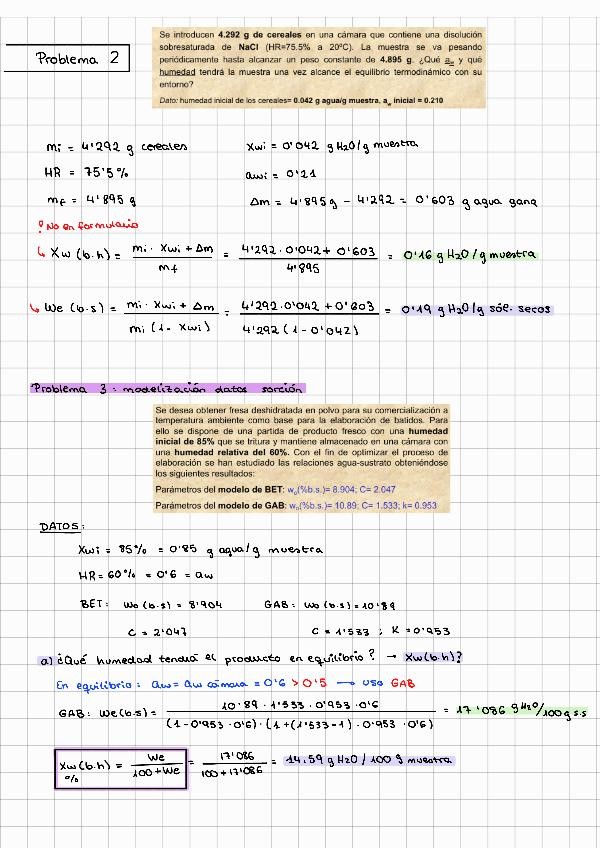 Problema 2
Se introducen 4.292 g de cereales en una cámara que contiene una disolución
sobresaturada de NaCl (HR=75.5% a 20ºC). La muestra se va pesando
periódicamente hasta alcanzar un peso constante de 4.895 g. ¿Qué aw y qué
humedad tendrá la muestra una vez alcance el equilibrio termodinámico con su
entorno?
Dato: humedad inicial de los cereales= 0.042 g agua/g muestra, aw inicial = 0.210
mi = 4'292 g cereales
Xwi = 0'042 g H2O/g muestra
HR = 75'5 %
awi = 0'21
mf = 4'895 g
Δm = 4'895g - 4'292 = 0'603 g agua gana
! No en formulario
↳ Xw (b.h) = mi · Xwi + Δm / mf = 4'292 · 0'042 + 0'603 / 4'895 = 0'16 g H2O/g muestra
↳ We (b.s) = mi · Xwi + Δm / mi (1 - Xwi) = 4'292·0'042 + 0'603 / 4'292 (1 - 0'042) = 0'19 g H2O/g sól. secos
Problema 3: modelización datos sorción
Se desea obtener fresa deshidratada en polvo para su comercialización a
temperatura ambiente como base para la elaboración de batidos. Para
ello se dispone de una partida de producto fresco con una humedad
inicial de 85% que se tritura y mantiene almacenado en una cámara con
una humedad relativa del 60%. Con el fin de optimizar el proceso de
elaboración se han estudiado las relaciones agua-sustrato obteniéndose
los siguientes resultados:
Parámetros del modelo de BET: wo(%b.s.)= 8.904; C= 2.047
Parámetros del modelo de GAB: wo(%b.s.)= 10.89; C= 1.533; k= 0.953
DATOS:
Xwi = 85% = 0'85 g agua/g muestra
HR = 60% = 0'6 = aw
BET: Wo (b.s) = 8'904
GAB: Wo (b.s) = 10'89
C = 2'047
C = 1'533 ; K = 0'953
a) ¿Qué humedad tendrá el producto en equilibrio? → Xw(b.h)?
En equilibrio: aw = aw cámara = 0'6 > 0'5 → uso GAB
GAB: We(b.s) = 10'89 · 1'533 · 0'953 · 0'6 / (1 - 0'953 · 0'6) · (1 + (1'533 - 1) · 0'953 · 0'6) = 17'086 g H2O/100 g s.s
Xw (b.h) % = We / 100 + We = 17'086 / 100 + 17'086 = 14.59 g H2O / 100 g muestra